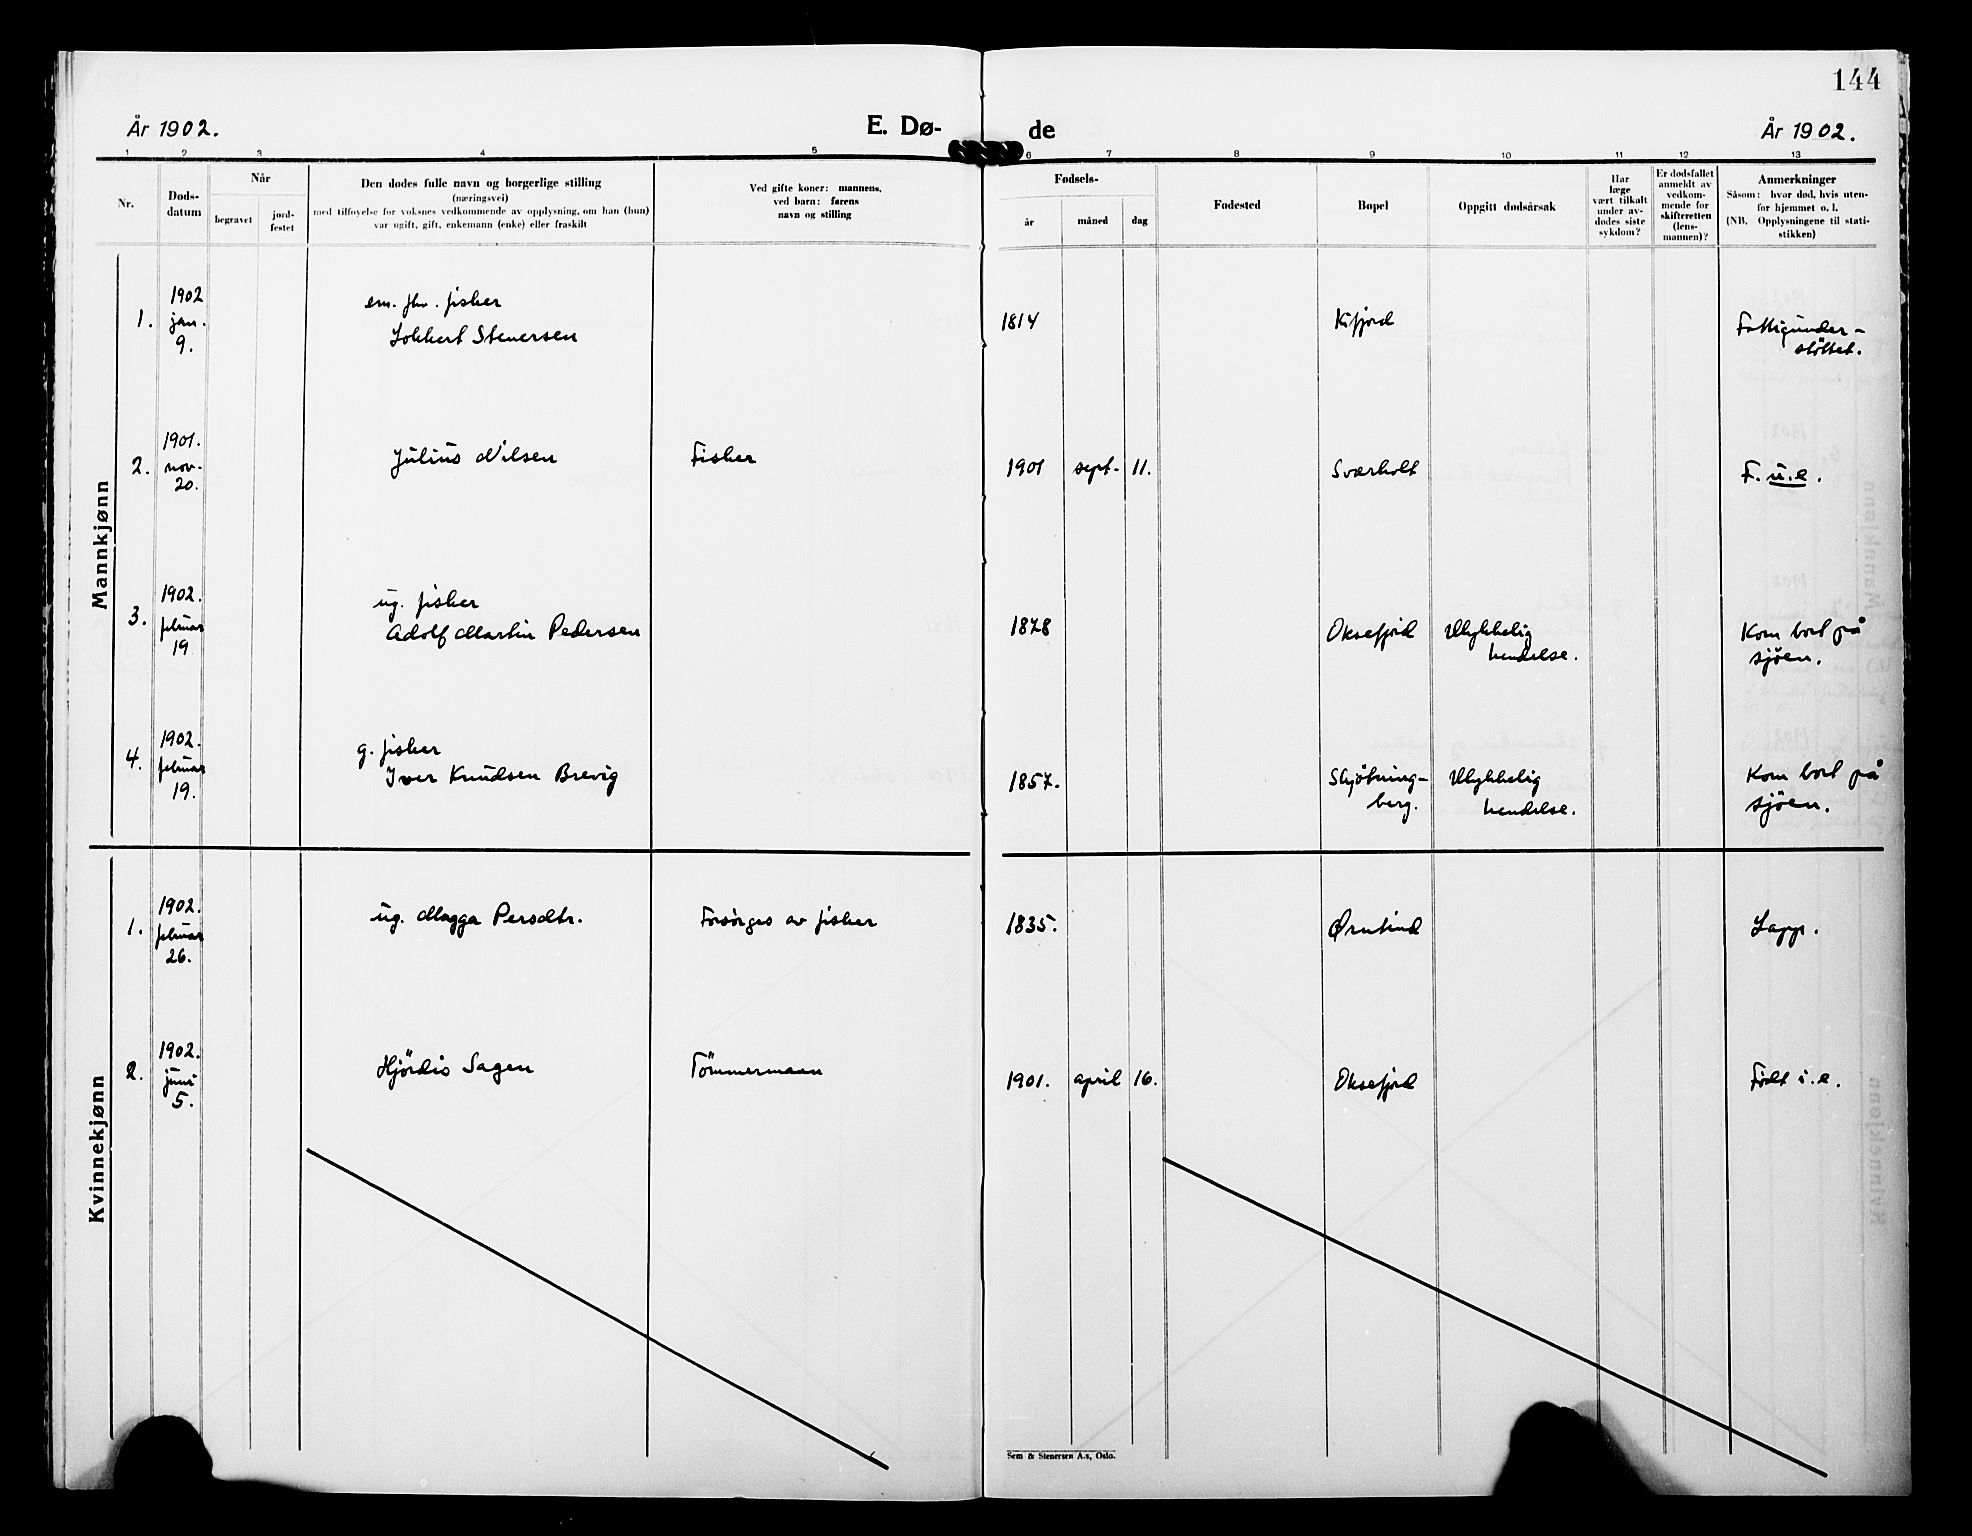 144
År 1902.
E. Dø-
de
År 1902.
1 2 3 4 5 6 7 8 9 10 11 12 13
Nr.
Døds-
datum
Når
begravet
jord-
festet
Den dødes fulle navn og borgerlige stilling
(næringsvei)
med tilføyelse for voksnes vedkommende av opplysning, om han (hun)
var ugift, gift, enkemann (enke) eller fraskilt
Ved gifte koner: mannens,
ved barn: farens
navn og stilling
Fødsels-
år
måned
dag
Fødested
Bopel
Oppgitt dødsårsak
Har
læge
vært tilkalt
under av-
dødes siste
sykdom?
Er dødsfallet
anmeldt av
vedkom-
mende for
skifteretten
(lens-
mannen)?
Anmerkninger
Såsom: hvor død, hvis uten-
for hjemmet o. l.
(NB. Opplysningene til stati-
stikken)
Mannkjønn
1.
1902
jan.
9.
em. fhv. fisker
Lokkert Stenersen
1814
Kifjord
Fattigunder-
støttet.
2.
1901.
nov.
20.
Julius Nilsen
Fisker
1901
sept.
11.
Sværholt
F. u.e.
3.
1902.
februar
19
ug. fisker
Adolf Martin Pedersen
1878
Oksefjord
Ulykkelig
hendelse.
Kom bort på
sjöen.
4.
1902.
februar
19.
g. fisker
Iver Knudsen Brevig
1857.
Skjötning-
berg.
Ulykkelig
hendelse.
Kom bort på
sjöen.
Kvinnekjønn
1.
1902.
februar
26.
ug. Magga Persdtr.
Forsörges av fisker
1835.
Ørntind
Lapp.
2.
1902.
juni
5.
Hjördis Sagen
Tömmermann
1901.
april
16.
Oksefjord
Født i.e.
Sem & Stenersen A.s, Oslo.